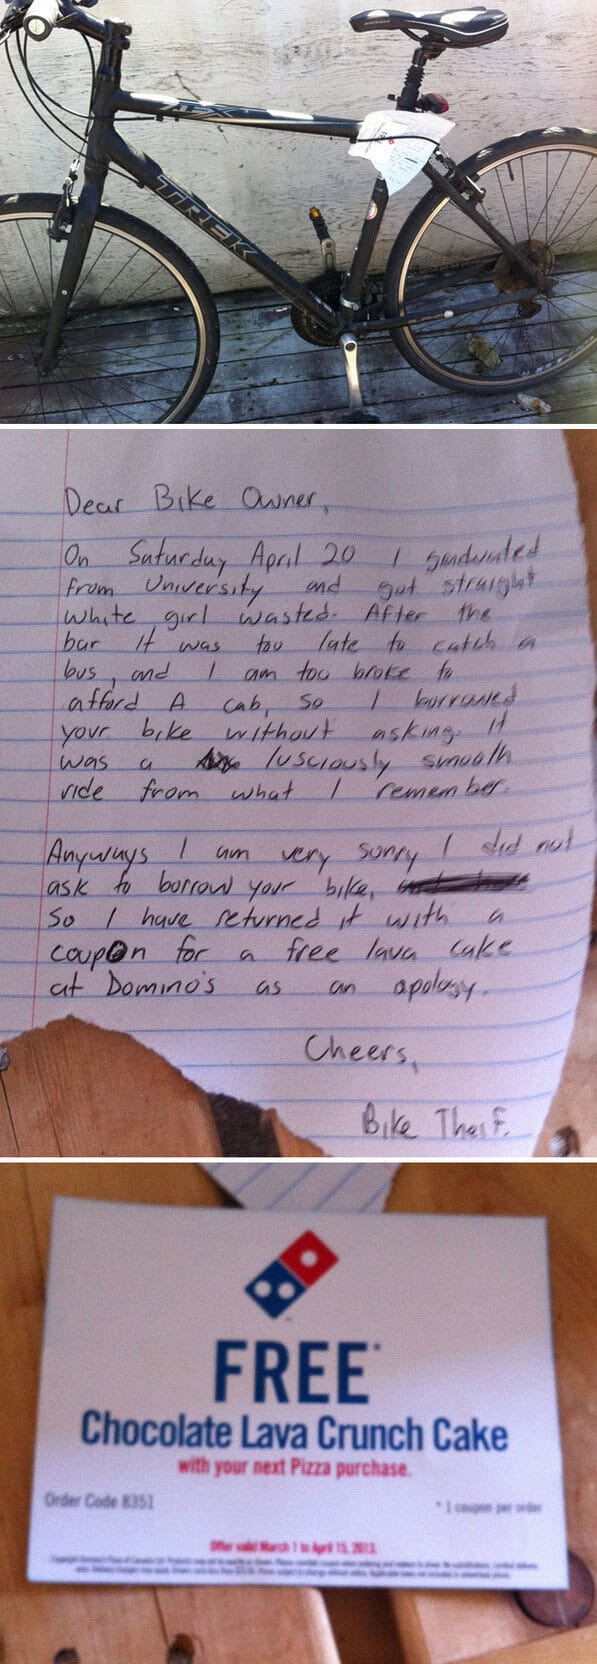 7.3 FX
TREK
Dear Bike Owner,
On Saturday April 20 I graduated
from University and got straight
white girl wasted. After the
bar it was too late to catch a
bus, and I am too broke to
afford A cab, so I borrowed
your bike without asking. It
was a lusciously smooth
ride from what I remember.
Anyways I am very sorry I did not
ask to borrow your bike,
So I have returned it with a
coupon for a free lava cake
at Domino's as an apology.
Cheers,
Bike Theif.
FREE*
Chocolate Lava Crunch Cake
with your next Pizza purchase.
Order Code 8351
* 1 coupon per order
Offer valid March 1 to April 15, 2013.